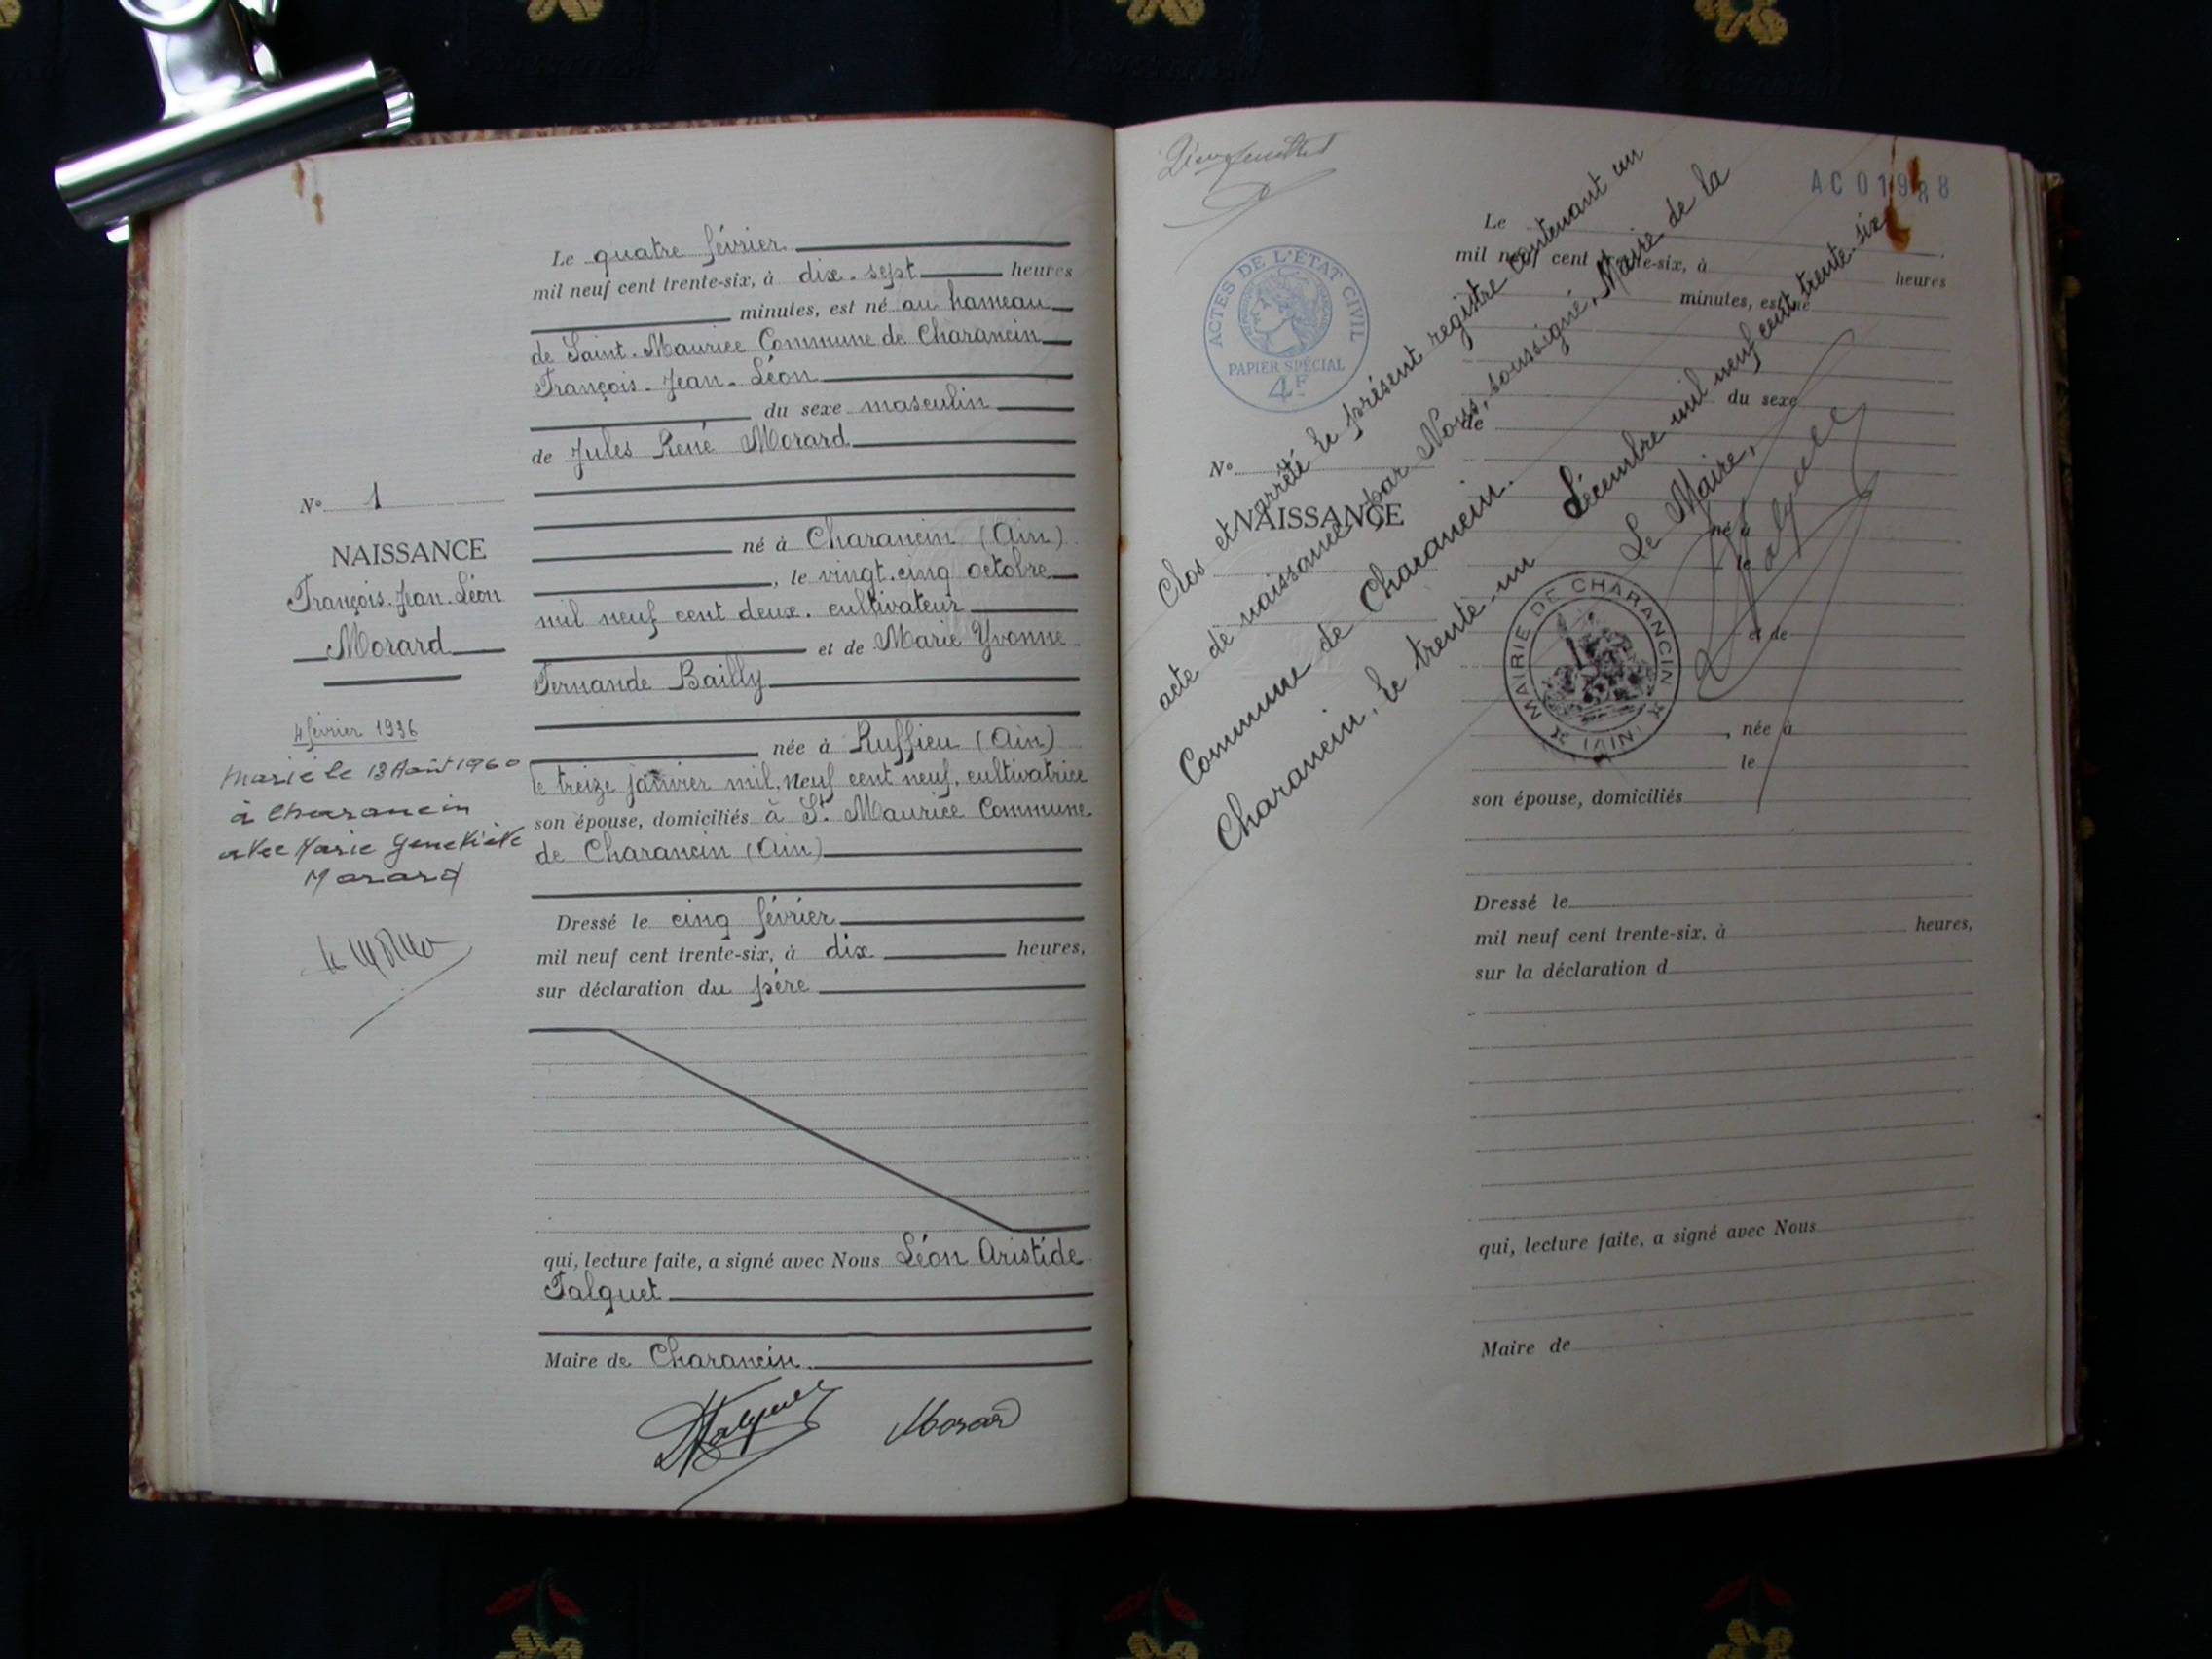 Le quatre février
mil neuf cent trente-six, à dix-sept heures
minutes, est né au hameau
de Saint-Maurice Commune de Charancin
François-Jean-Léon
du sexe masculin
de Jules René Morard
N° 1
NAISSANCE
François-Jean-Léon
Morard
né à Charancin (Ain)
, le vingt-cinq octobre
mil neuf cent deux, cultivateur
et de Marie Yvonne
Fernande Bailly
née à Ruffieu (Ain)
le treize janvier mil neuf cent neuf, cultivatrice
son épouse, domiciliés à St Maurice Commune
de Charancin (Ain)
4 février 1936
Marié le 13 Août 1960
à Charancin
avec Marie Geneviève
Morard
Dressé le cinq février
mil neuf cent trente-six, à dix heures,
sur déclaration du père
qui, lecture faite, a signé avec Nous Léon Aristide
Falquet
Maire de Charancin
Falquet
Morard
AC 01988
ACTES DE L'ÉTAT CIVIL
PAPIER SPÉCIAL
4F
Clos et arrêté le présent registre contenant un
acte de naissance, par Nous, soussigné, Maire de la
Commune de Charancin.
Charancin, le trente-un Décembre mil neuf cent trente-six
Le Maire,
Falquet
MAIRIE DE CHARANCIN
(AIN)
Le
mil neuf cent trente-six, à
heures
minutes, est né
du sexe
de
N°
NAISSANCE
né à
le
et de
, née à
le
son épouse, domiciliés
Dressé le
mil neuf cent trente-six, à heures,
sur la déclaration d
qui, lecture faite, a signé avec Nous
Maire de